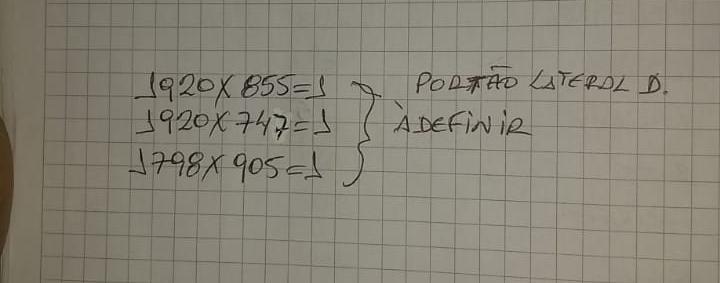 1920X855=1 PORTÃO LATERAL D.
1920X747=1 À DEFINIR
1798X905=1